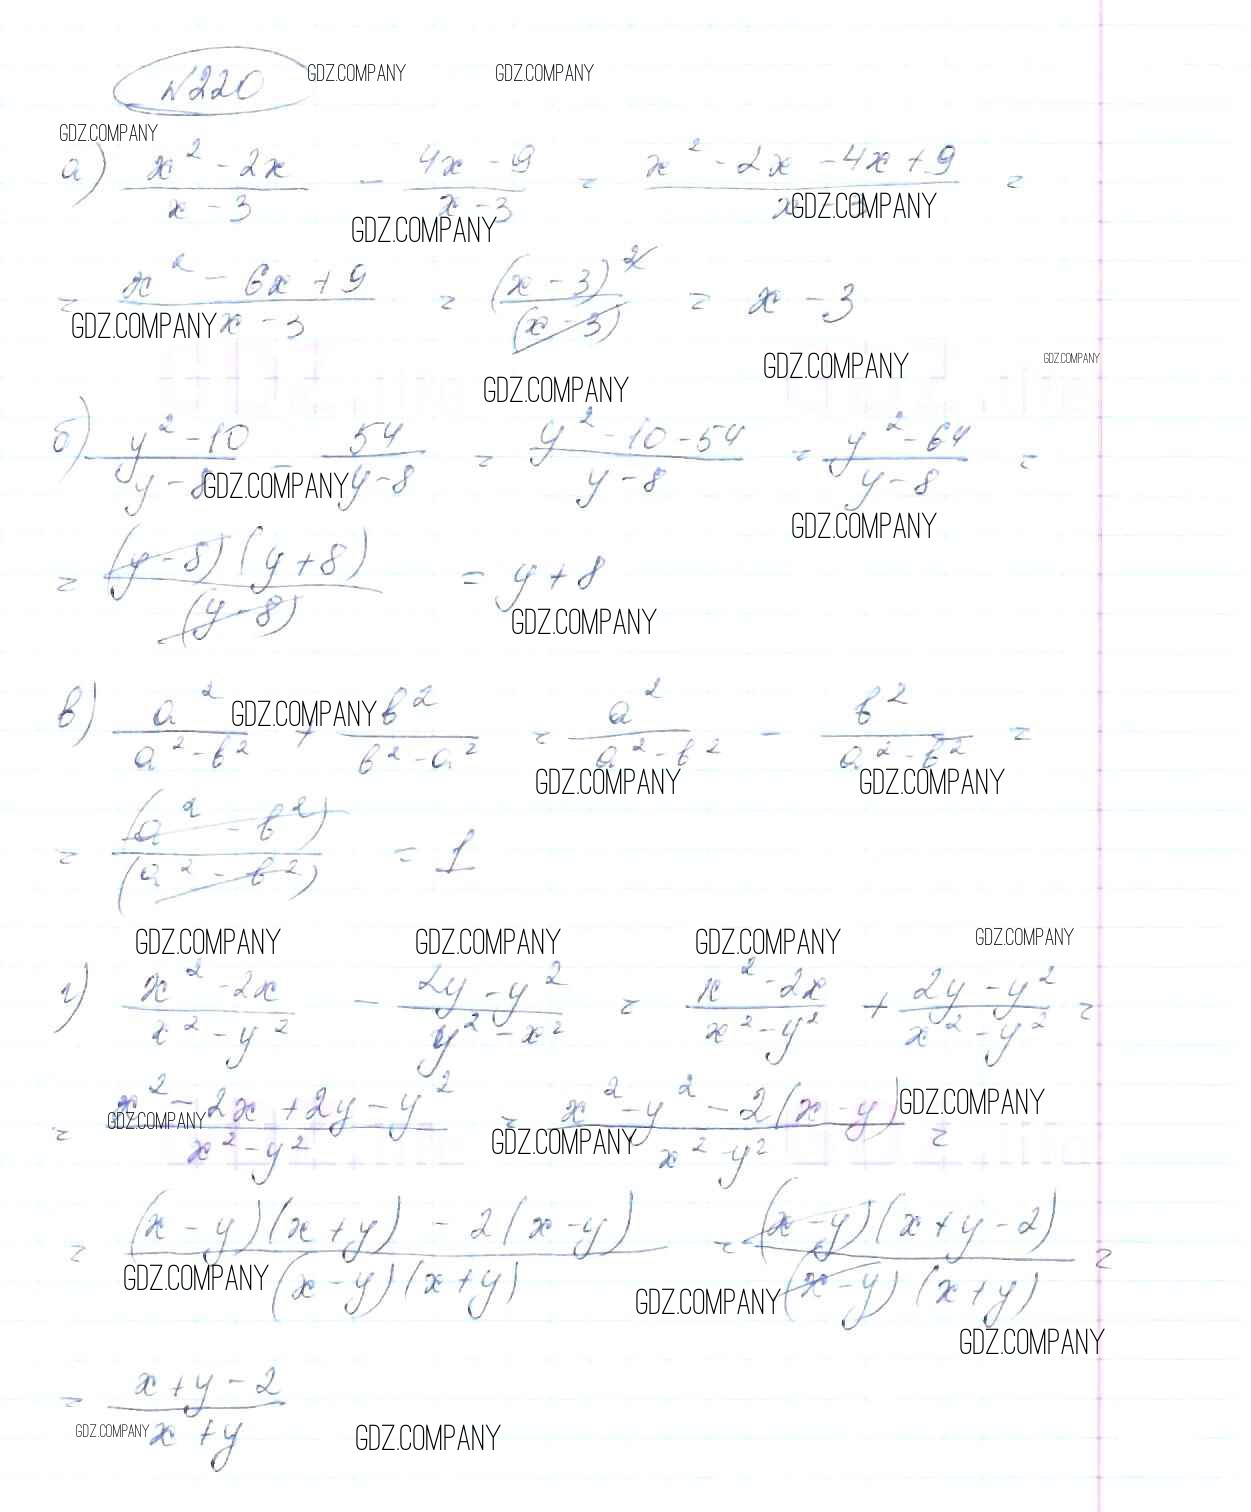 №220 GDZ.COMPANY GDZ.COMPANY
GDZ.COMPANY
а) (x² - 2x)/(x - 3) - (4x - 9)/(x - 3) = (x² - 2x - 4x + 9)/(x - 3) =
GDZ.COMPANY GDZ.COMPANY
= (x² - 6x + 9)/(x - 3) = (x - 3)²/(x - 3) = x - 3
GDZ.COMPANY
GDZ.COMPANY GDZ.COMPANY GDZ.COMPANY
б) (y² - 10)/(y - 8) - 54/(y - 8) = (y² - 10 - 54)/(y - 8) = (y² - 64)/(y - 8) =
GDZ.COMPANY GDZ.COMPANY
= (y - 8)(y + 8)/(y - 8) = y + 8
GDZ.COMPANY
в) a²/(a² - b²) + b²/(b² - a²) = a²/(a² - b²) - b²/(a² - b²) =
GDZ.COMPANY GDZ.COMPANY GDZ.COMPANY
= (a² - b²)/(a² - b²) = 1
GDZ.COMPANY GDZ.COMPANY GDZ.COMPANY GDZ.COMPANY
г) (x² - 2x)/(x² - y²) - (2y - y²)/(y² - x²) = (x² - 2x)/(x² - y²) + (2y - y²)/(x² - y²) =
= (x² - 2x + 2y - y²)/(x² - y²) = (x² - y² - 2(x - y))/(x² - y²) =
GDZ.COMPANY GDZ.COMPANY GDZ.COMPANY
= ((x - y)(x + y) - 2(x - y))/((x - y)(x + y)) = (x - y)(x + y - 2)/((x - y)(x + y)) =
GDZ.COMPANY GDZ.COMPANY GDZ.COMPANY
= (x + y - 2)/(x + y)
GDZ.COMPANY GDZ.COMPANY